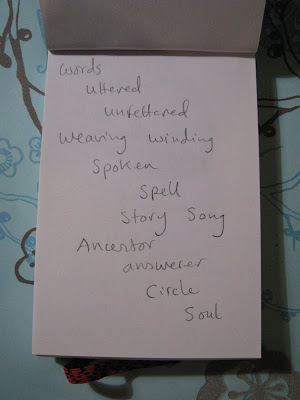 words
uttered
unfettered
weaving winding
Spoken
Spell
Story Song
Ancestor
answerer
Circle
Soul